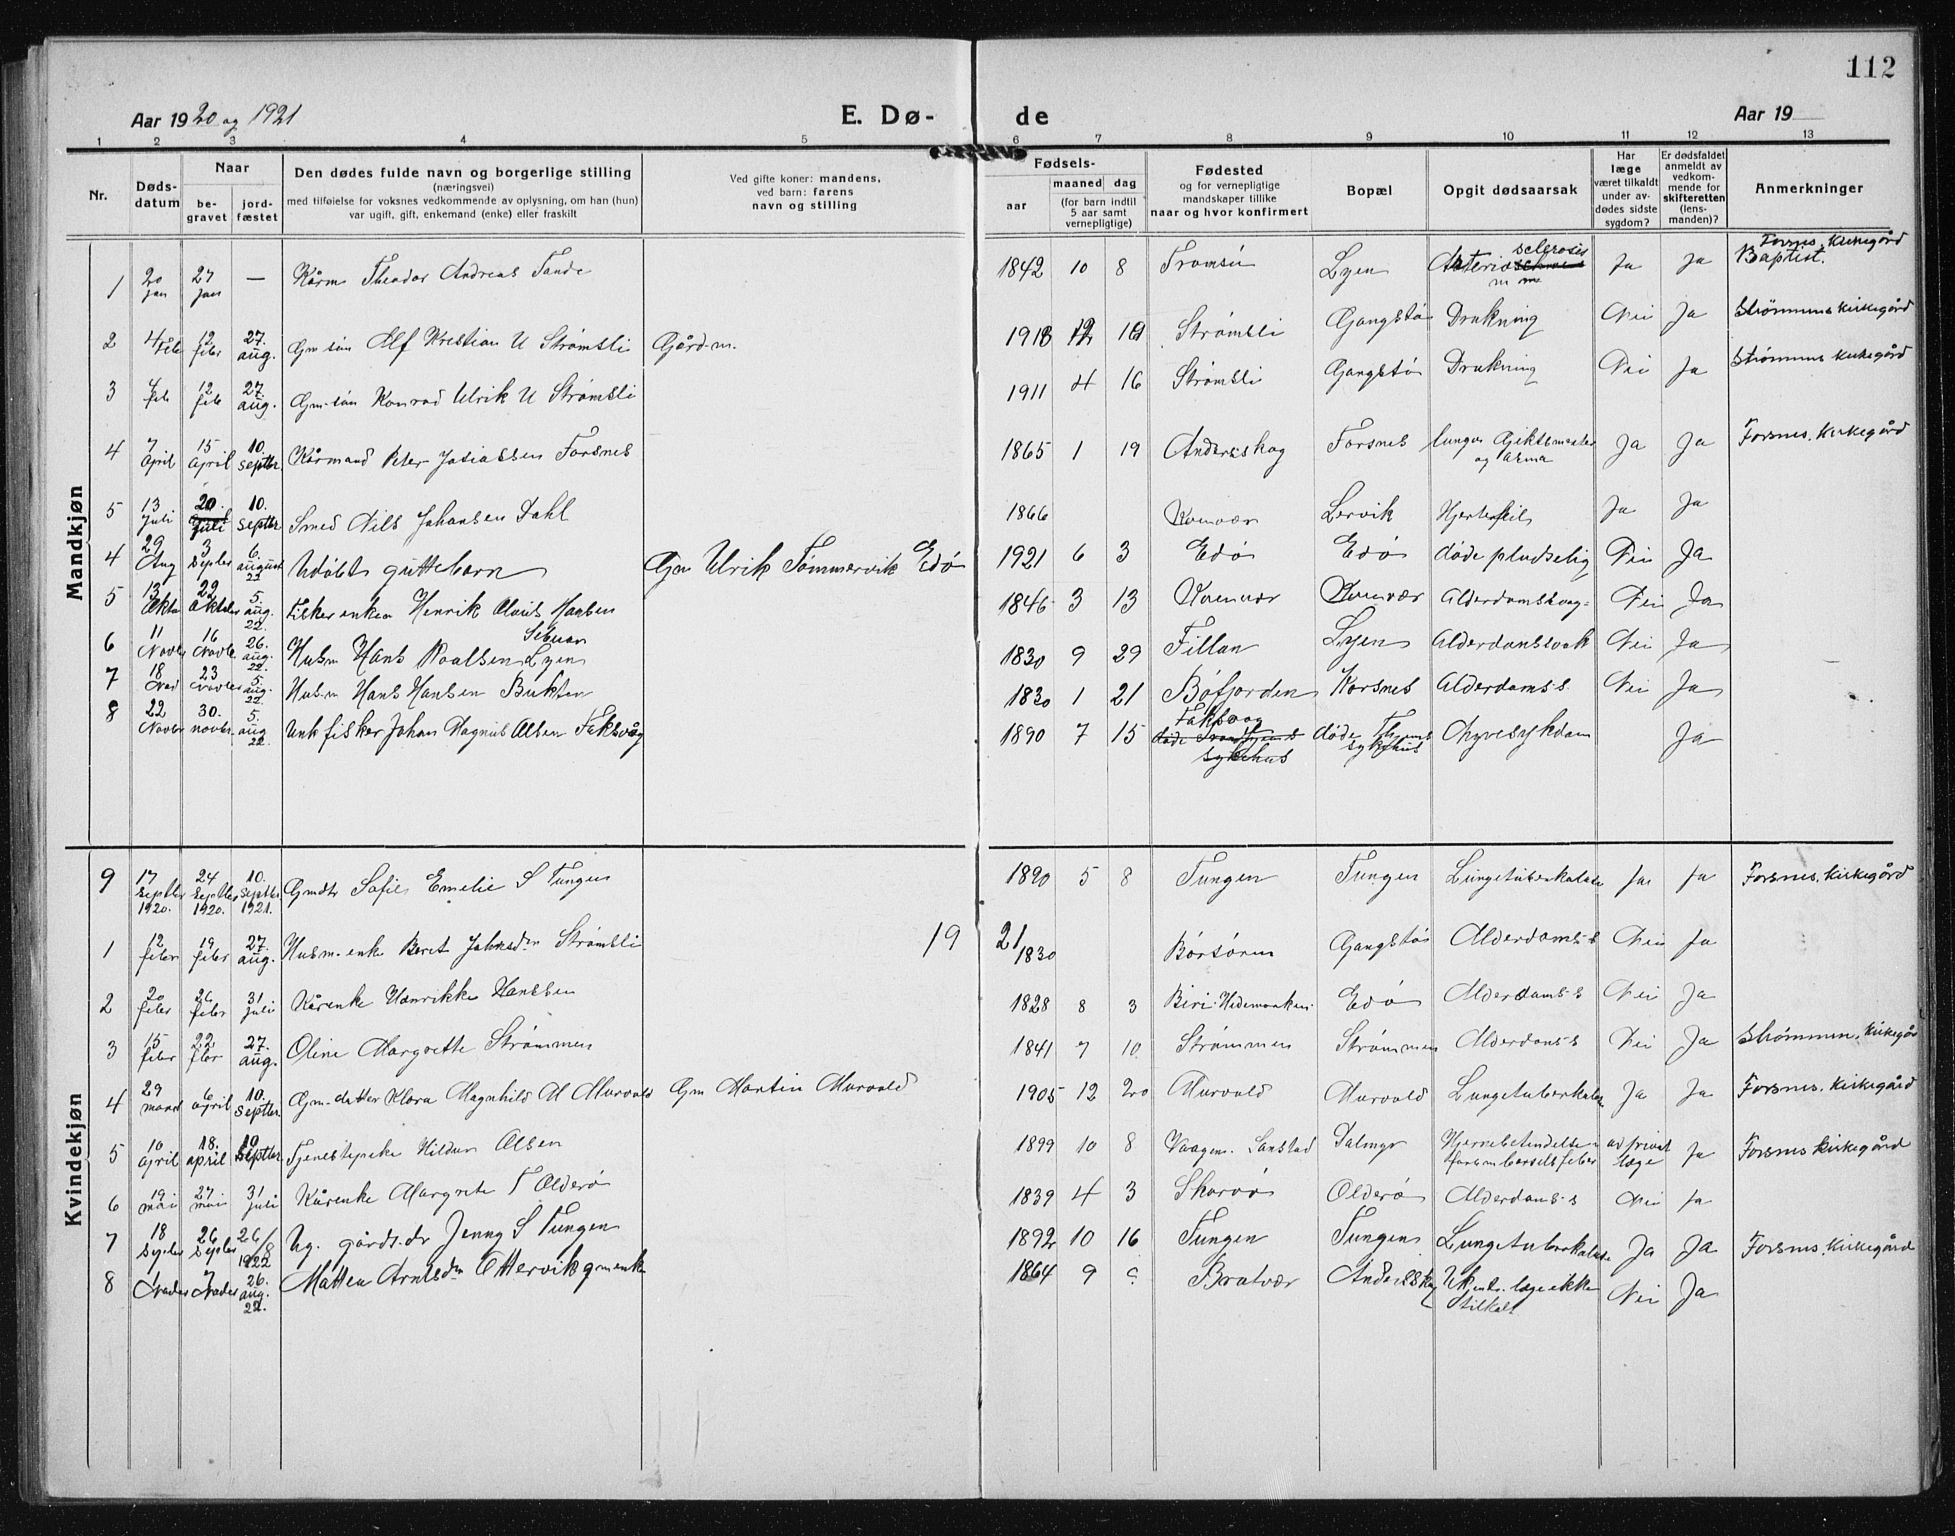 112
Aar 1920 og 1921 E. Dø- de Aar 19
1 2 3 4 5 6 7 8 9 10 11 12 13
Nr.
Døds-
datum
Naar
be-
gravet
jord-
fæstet
Den dødes fulde navn og borgerlige stilling
(næringsvei)
med tilføielse for voksnes vedkommende av oplysning, om han (hun)
var ugift, gift, enkemand (enke) eller fraskilt
Ved gifte koner: mandens,
ved barn: farens
navn og stilling
Fødsels-
aar
maaned dag
(for barn indtil
5 aar samt
vernepligtige)
Fødested
og for vernepligtige
mandskaper tillike
naar og hvor konfirmert
Bopæl
Opgit dødsaarsak
Har
læge
været tilkaldt
under av-
dødes sidste
sygdom?
Er dødsfaldet
anmeldt av
vedkom-
mende for
skifteretten
(lens-
manden)?
Anmerkninger
Mandkjøn
1 20 jan 27 jan — Kårm Theodor Andreas Tande 1842 10 8 Tromsø Lyen Arteriosclerosis Ja Ja Forsnes kirkegård Baptist.
2 4 feb 12 feber 27. aug. Gm søn Alf Kristian U Strømsli Gårdm. 1918 12 19 Strømsli Gangstø Drukning Nei Ja Strømmens kirkegård
3 4 feb 12 feb 27. aug. Gm-søn Konrad Ulrik U Strømsli 1911 4 16 Strømsli Gangstø Drukning Nei Ja Strømmens kirkegård
4 7 April 15 April 10. septbr. Kårmand Peter Josiassen Forsnes 1865 1 19 Andersskog Forsnes Ja Ja Forsnes. kirkegård
5 13 Juli 20 juli 10. septbr Smed Nils Johansen Dahl 1866 Kvenvær Lervik Hjertefeil Ja Ja
4 29 Aug 3 Sepber 6. august 22 Udøbt guttebarn Gm Ulrik Tømmervik Edø 1921 6 3 Edø Edø døde pludselig Nei Ja
5 13 Oktbr 22 Oktober 5. aug. 22. Fisker enkem Henrik Olaus Hansen 1846 3 13 Kvenvær Kvenvær Alderdomssvag- Nei Ja
6 11 Novbr 16 Novbr 26. aug. 22. Husm Hans Roalsen Lyen 1830 9 29 Fillan Lyen Alderdomssvak Nei Ja
7 18 Nov 23 Novber 5. aug. 22. Husm Hans Hansen Bukten 1830 1 21 Bøfjorden Korsnes Alderdoms-s. Nei Ja
8 22 Novbr 30. novbr. 5. aug 22. Unk fisker Johan Magnus Olsen Faksvåg 1890 7 15 Faksvåg døde Trondhjems sykehus døde Thjems sykehus Ja
Kvindekjøn
9 17 septbr 1920. 24 septbr 1920. 10. septbr. 1921. Gmdtr Sofie Emelie S Tungen 1890 5 8 Tungen Tungen Lungetuberkulose Ja Ja Forsnes. kirkegård
19 21
1 12 feber 19 feber 27. aug. Husm-enke Beret Johnsdn Strømsli 1830 Børsøren Gangstø Alderdoms-s Nei Ja
2 20 feber 26 feber 31 juli Kårenke Henrikke Hanssen 1828 8 3 Biri Hedemarken Edø Alderdoms-s Nei Ja
3 15 feber 22 fber 27. aug. Oline Margrette Strømmen 1841 7 10 Strømmen Strømmen Alderdoms-s Nei Ja Strømmen. kirkegård
4 29 mars 6 april 10. septbr. Gm-datter Klara Magnhild M Murvold Gm Martin Murvold 1905 12 20 Murvold Murvold Lungetuberkulose Ja Ja Forsnes. kirkegård
5 10 april 18. april 10. septbr Tjenestepike Hildur Olsen 1899 10 8 Vaagen. Sanstad Dalmyr Hjernebetendelse av privat læge Ja Forsnes kirkegård
6 19 mai 27 mai 31 juli Kårenke Margrete T Olderø 1839 4 3 Skarvø Olderø Alderdoms-s Nei Ja
7 18 Sepber 26 Sepber 26/8 1922 Ug. gårds.dr Jenny S Tungen 1892 10 16 Tungen Tungen Lungetuberkulose Ja Ja Forsnes. kirkegård
8 7 26. aug. 22. Mattea Arntsdn Ottervik gmenk 1864 9 9 Bratvær Andersskog Ukjent. læge ikke tilkalt Nei Ja